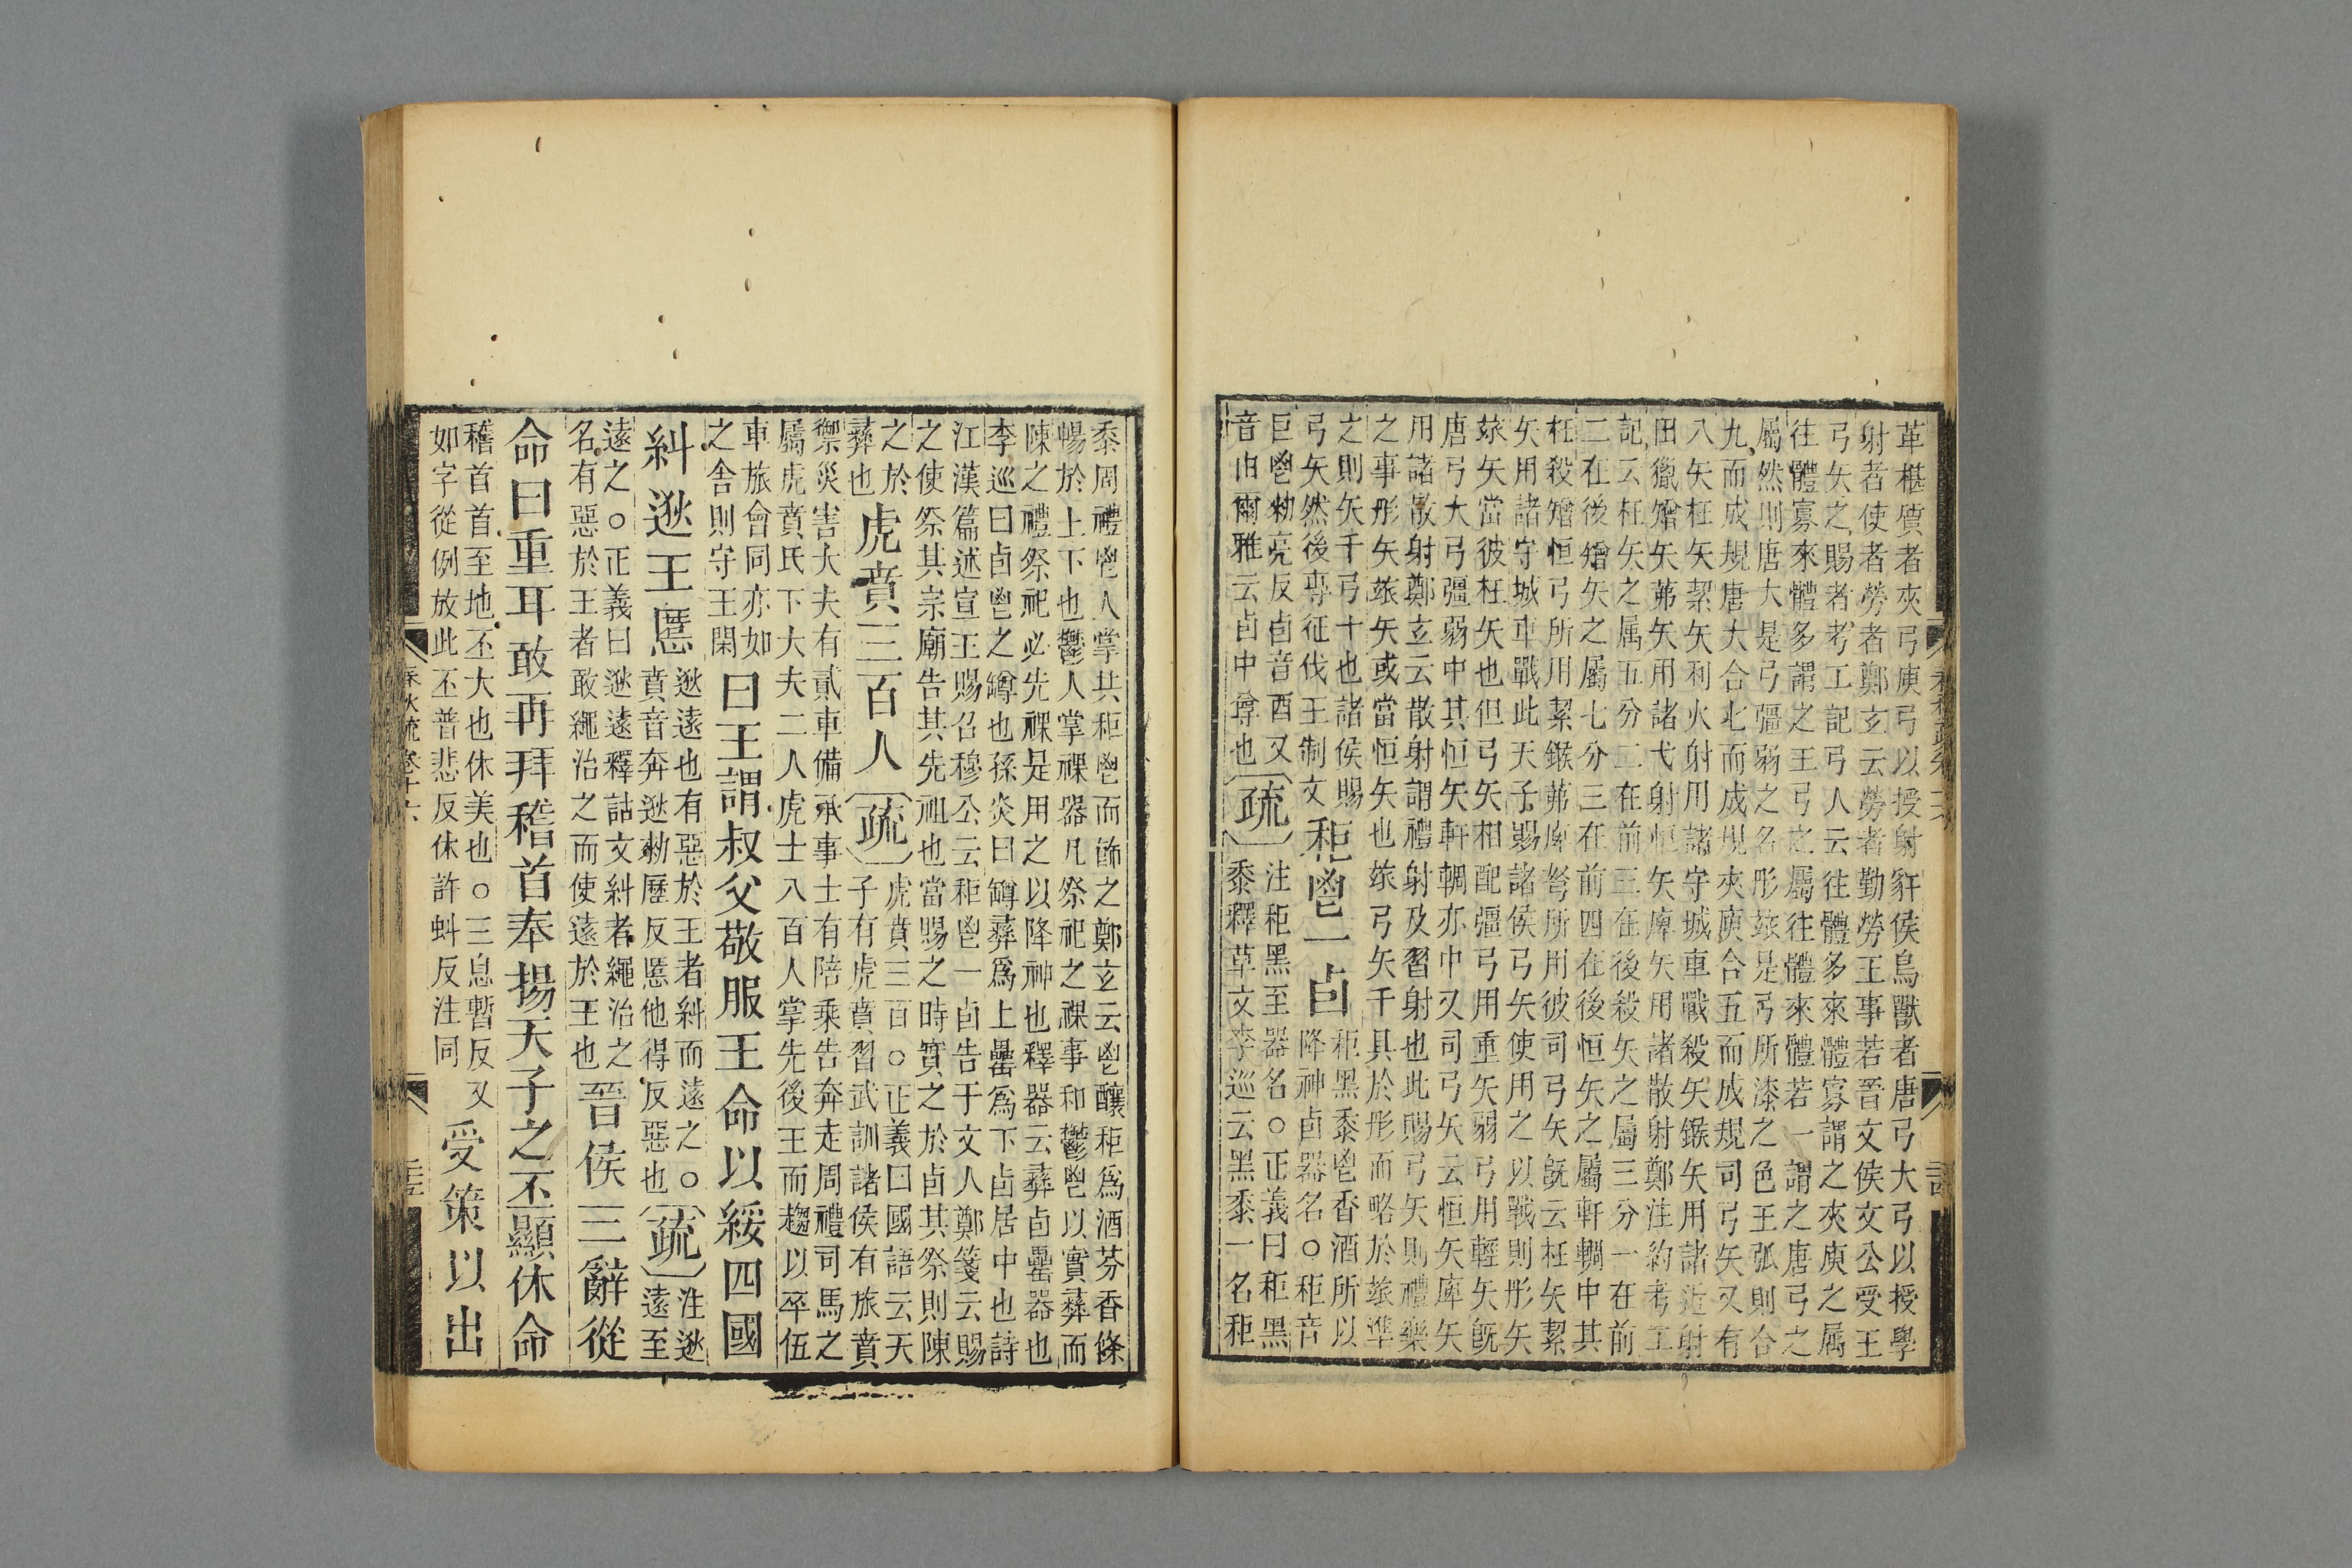 革椹質者夾弓庾弓以授射豻侯鳥獸者唐弓大弓以授學
射者使者勞者鄭玄云勞者勤勞王事若晉文侯文公受王
弓矢之賜者考工記弓人云往體多來體寡謂之夾庾之屬
往體寡來體多謂之王弓之屬往體來體若一謂之唐弓之
屬然則唐大是弓彊弱之名彤玈是弓所漆之色王弧則合
九而成規唐大合七而成規夾庾合五而成規司弓矢又有
八矢枉矢絜矢利火射用諸守城車戰殺矢鍭矢用諸近射
田獵矰矢茀矢用諸弋射恒矢庳矢用諸散射鄭注約考工
記云枉矢之属五分二在前三在後殺矢之屬三分一在前
二在後矰矢之屬七分三在前四在後恒矢之屬軒輖中其
枉殺矰恒弓所用絜鍭茀庳弩所用彼司弓矢旣云枉矢絜
矢用諸守城車戰此天子賜諸侯弓矢使用之以戰則彤矢
玈矢當彼枉矢也但弓矢相配彊弓用重矢弱弓用輕矢旣
唐弓大弓彊弱中其恒矢軒輖亦中又司弓矢云恒矢庳矢
用諸散射鄭玄云散射謂禮射及習射也此賜弓矢則禮樂
之事彤矢玈矢或當恒矢也玈弓矢千具於彤而略於玈準
之則矢千弓十也諸侯賜
弓矢然後專征伐王制文
秬鬯一卣
秬黑黍鬯香酒所以
降神卣器名○秬音
巨鬯勑亮反卣音酉又
音由爾雅云卣中尊也
疏
注秬黑至器名○正義曰秬黑
黍釋草文李巡云黑黍一名秬
黍周禮鬯人掌共秬鬯而飾之鄭玄云鬯釀秬爲酒芬香條
暢於上下也鬱人掌祼器凡祭祀之祼事和鬱鬯以實彝而
陳之禮祭祀必先祼是用之以降神也釋器云彝卣罍器也
李巡曰卣鬯之罇也孫炎曰罇彝爲上罍爲下卣居中也詩
江漢篇述宣王賜召穆公云秬鬯一卣告于文人鄭箋云賜
之使祭其宗廟告其先祖也當賜之時實之於卣其祭則陳
之於
彝也
虎賁三百人
疏
虎賁三百○正義曰國語云天
子有虎賁習武訓諸侯有旅賁
禦災害大夫有貳車備承事士有陪乘告奔走周禮司馬之
屬虎賁氏下大夫二人虎士八百人掌先後王而趨以卒伍
車旅會同亦如
之舍則守王閑
曰王謂叔父敬服王命以綏四國
糾逖王慝
逖遠也有惡於王者糾而遠之○
賁音奔逖勑歷反慝他得反惡也
疏
注逖
遠至
遠之○正義曰逖遠釋詁文糾者繩治之
名有惡於王者敢繩治之而使遠於王也
晉侯三辭從
命曰重耳敢再拜稽首奉揚天子之丕顯休命
稽首首至地丕大也休美也○三息暫反又
如字從例放此丕普悲反休許蚪反注同
受策以出
春秋疏卷十六